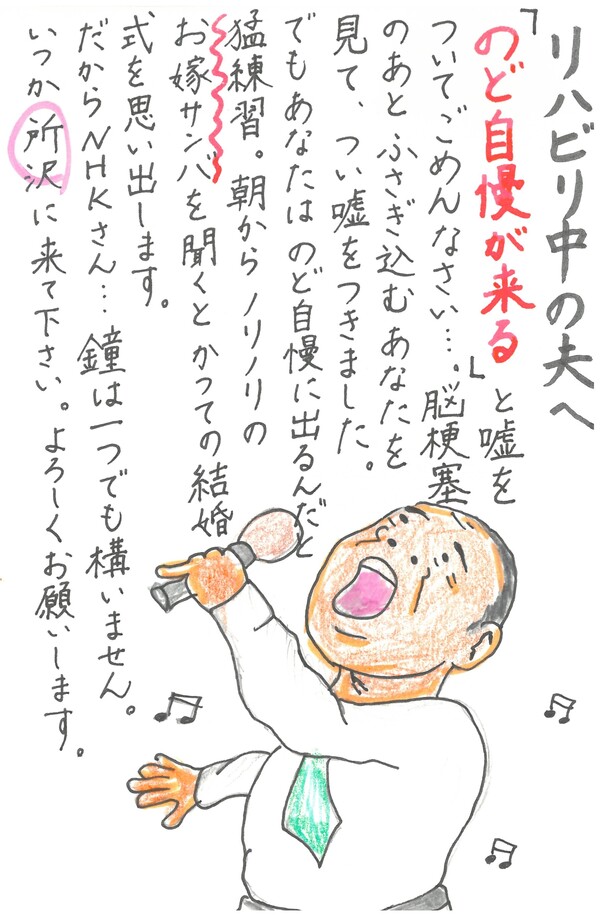 リハビリ中の夫へ
「のど自慢が来る」と嘘を
ついてごめんなさい…。脳梗塞
のあとふさぎ込むあなたを
見て、つい嘘をつきました。
でもあなたはのど自慢に出るんだと
猛練習。朝からノリノリの
お嫁サンバを聞くとかつての結婚
式を思い出します。
だからNHKさん…鐘は一つでも構いません。
いつか所沢に来て下さい。よろしくお願いします。